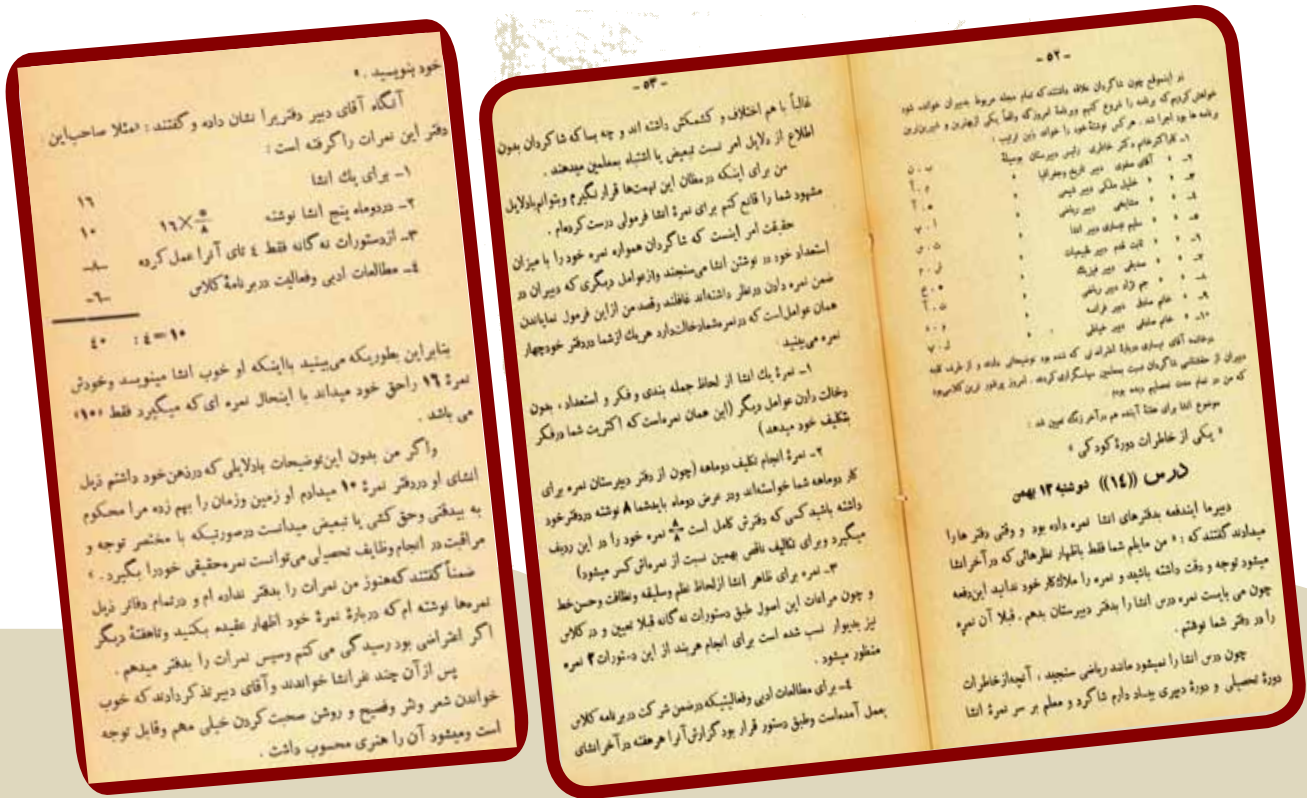 - ۵۲ -
در اینموقع چون شاگردان علاقه داشتند که تمام مجله مربوط بدبیران خوانده شود
خواهش کردیم که برنامه را شروع کنیم وبرنامهٔ امروز که واقعاً یکی از بهترین و شیرین‌ترین
برنامه ها بود اجرا شد . هر کس نوشتهٔ خود را خواند بدین ترتیب :
۱ـ کاراکتر خانم دکتر خاطری رئیس دبیرستان بوسیلهٔ ب . ن
۲ـ » آقای صفوی دبیر تاریخ وجغرافیا » م . آ
۳ـ » » خلیل ملکی دبیر شیمی » ه . آ
۴ـ » » مشایخی دبیر ریاضی » ا . پ
۵ـ » » سلیم نیساری دبیر انشا » ث . ی
۶ـ » » ثابت قدم دبیر طبیعیات » ل . م
۷ـ » » صدیقی دبیر فیزیک » ه . ع
۸ـ » » جم نژاد دبیر ریاضی » ث . آ
۹ـ » خانم دبیر فرانسه » و . ه
۱۰ـ » خانم دبیر خیاطی » ل . پ
درخاتمه آقای نیساری دربارهٔ اعتراضاتی که شده بود توضیحاتی دادند و از طرف کلیه
دبیران از حقشناسی شاگردان نسبت بمعلمین سپاسگزاری کردند . امروز پرشورترین کلاسی بود
که من در تمام مدت تحصیلم دیده بودم .
موضوع انشا برای هفتهٔ آینده هم در آخر زنگ تعیین شد :
« یکی از خاطرات دورهٔ کودکی »
درس ((۱۴)) دوشنبه ۱۳ بهمن
دبیرما ایندفعه بدفترهای انشا نمره داده بود و وقتی دفتر ها را
میدادند گفتند که : « من مایلم شما فقط باظهار نظرهائی که در آخر انشا
میشود توجه و دقت داشته باشید و نمره را ملاک کار خود ندانید این دفعه
چون می بایست نمره درس انشا را بدفتر دبیرستان بدهم . قبلا آن نمره
را در دفتر شما نوشتم .
چون درس انشا را نمیشود مانند ریاضی سنجید ، آنچه از خاطرات
دورهٔ تحصیلی و دورهٔ دبیری بیاد دارم شاگرد و معلم بر سر نمرهٔ انشا
- ۵۳ -
غالباً با هم اختلاف و کشمکش داشته اند و چه بسا که شاگردان بدون
اطلاع از دلایل امر نسبت تبعیض یا اشتباه بمعلمین میدهند .
من برای اینکه درمظان این تهمت‌ها قرار نگیرم وبتوانم بادلایل
مشهود شما را قانع کنم برای نمرهٔ انشا فرمولی درست کرده‌ام .
حقیقت امر اینست که شاگردان همواره نمره خود را با میزان
استعداد خود در نوشتن انشا می‌سنجند واز عوامل دیگری که دبیران در
ضمن نمره دادن درنظر داشته‌اند غافلند وقصد من از این فرمول نمایاندن
همان عوامل است که در نمره شما دخالت دارد هر یک از شما در دفتر خود چهار
نمره می بینید
۱ـ نمرهٔ یک انشا از لحاظ جمله بندی و فکر و استعداد ، بدون
دخالت دادن عوامل دیگر (این همان نمره‌ است که اکثریت شما در فکر
بتکلیف خود میدهد)
۲ـ نمرهٔ انجام تکلیف دوماهه (چون از دفتر دبیرستان نمره برای
کار دوماهه شما خواسته‌اند ودر عرض دوماه بایدشما ۸ نوشته در دفتر خود
داشته باشید کسی که دفترش کامل است ۸/۸ نمره خود را در این ردیف
میگیرد وبرای تکالیف ناقص بهمین نسبت از نمره‌اش کسر میشود)
۳ـ نمره برای ظاهر انشا از لحاظ نظم وسلیقه ونظافت وحسن خط
و چون مراعات این اصول طبق دستورات نه گانه قبلا تعیین و در کلاس
نیز بدیوار نصب شده است برای انجام هر بند از این دستورات ۲ نمره
منظور میشود .
۴ـ برای مطالعات ادبی وفعالیتیکه در ضمن شرکت در برنامه کلاس
بعمل آمده است وطبق دستور قرار بود گزارش آنرا هر هفته در آخر انشای
خود بنویسید . »
آنگاه آقای دبیر دفتریرا نشان داده و گفتند : «مثلا صاحب این
دفتر این نمرات را گرفته است :
۱ـ برای یك انشا ۱۶
۲ـ در دوماه پنج انشا نوشته ۱۶×۵/۸ ۱۰
۳ـ از دستورات نه گانه فقط ۴ تای آنرا عمل کرده ـ۸ـ
۴ـ مطالعات ادبی وفعالیت در برنامهٔ کلاس ـ۶ـ
۴۰ : ۴=۱۰
بنابراین بطوریکه می‌بینید بااینکه او خوب انشا مینویسد وخودش
نمرهٔ ۱۶ راحق خود میداند با اینحال نمره ای که میگیرد فقط «۱۰»
می باشد .
واگر من بدون این توضیحات بادلایلی که در ذهن خود داشتم ذیل
انشای او در دفتر نمرهٔ ۱۰ میدادم او زمین وزمان را بهم زده مرا محکوم
به بیدقتی وحق کشی یا تبعیض میدانست در صورتیکه با مختصر توجه و
مراقبت در انجام وظایف تحصیلی می‌توانست نمره حقیقی خود را بگیرد . »
ضمناً گفتند که هنوز من نمرات را بدفتر نداده ام و در تمام دفاتر ذیل
نمره‌ها نوشته ام که دربارهٔ نمرهٔ خود اظهار عقیده بکنید وتاهفتهٔ دیگر
اگر اعتراضی بود رسیدگی می کنم وسپس نمرات را بدفتر میدهم .
پس از آن چند نفر انشا خواندند و آقای دبیر تذکر دادند که خوب
خواندن شعر ونثر وفصیح و روشن صحبت کردن خیلی مهم وقابل توجه
است ومیشود آن را هنری محسوب داشت .